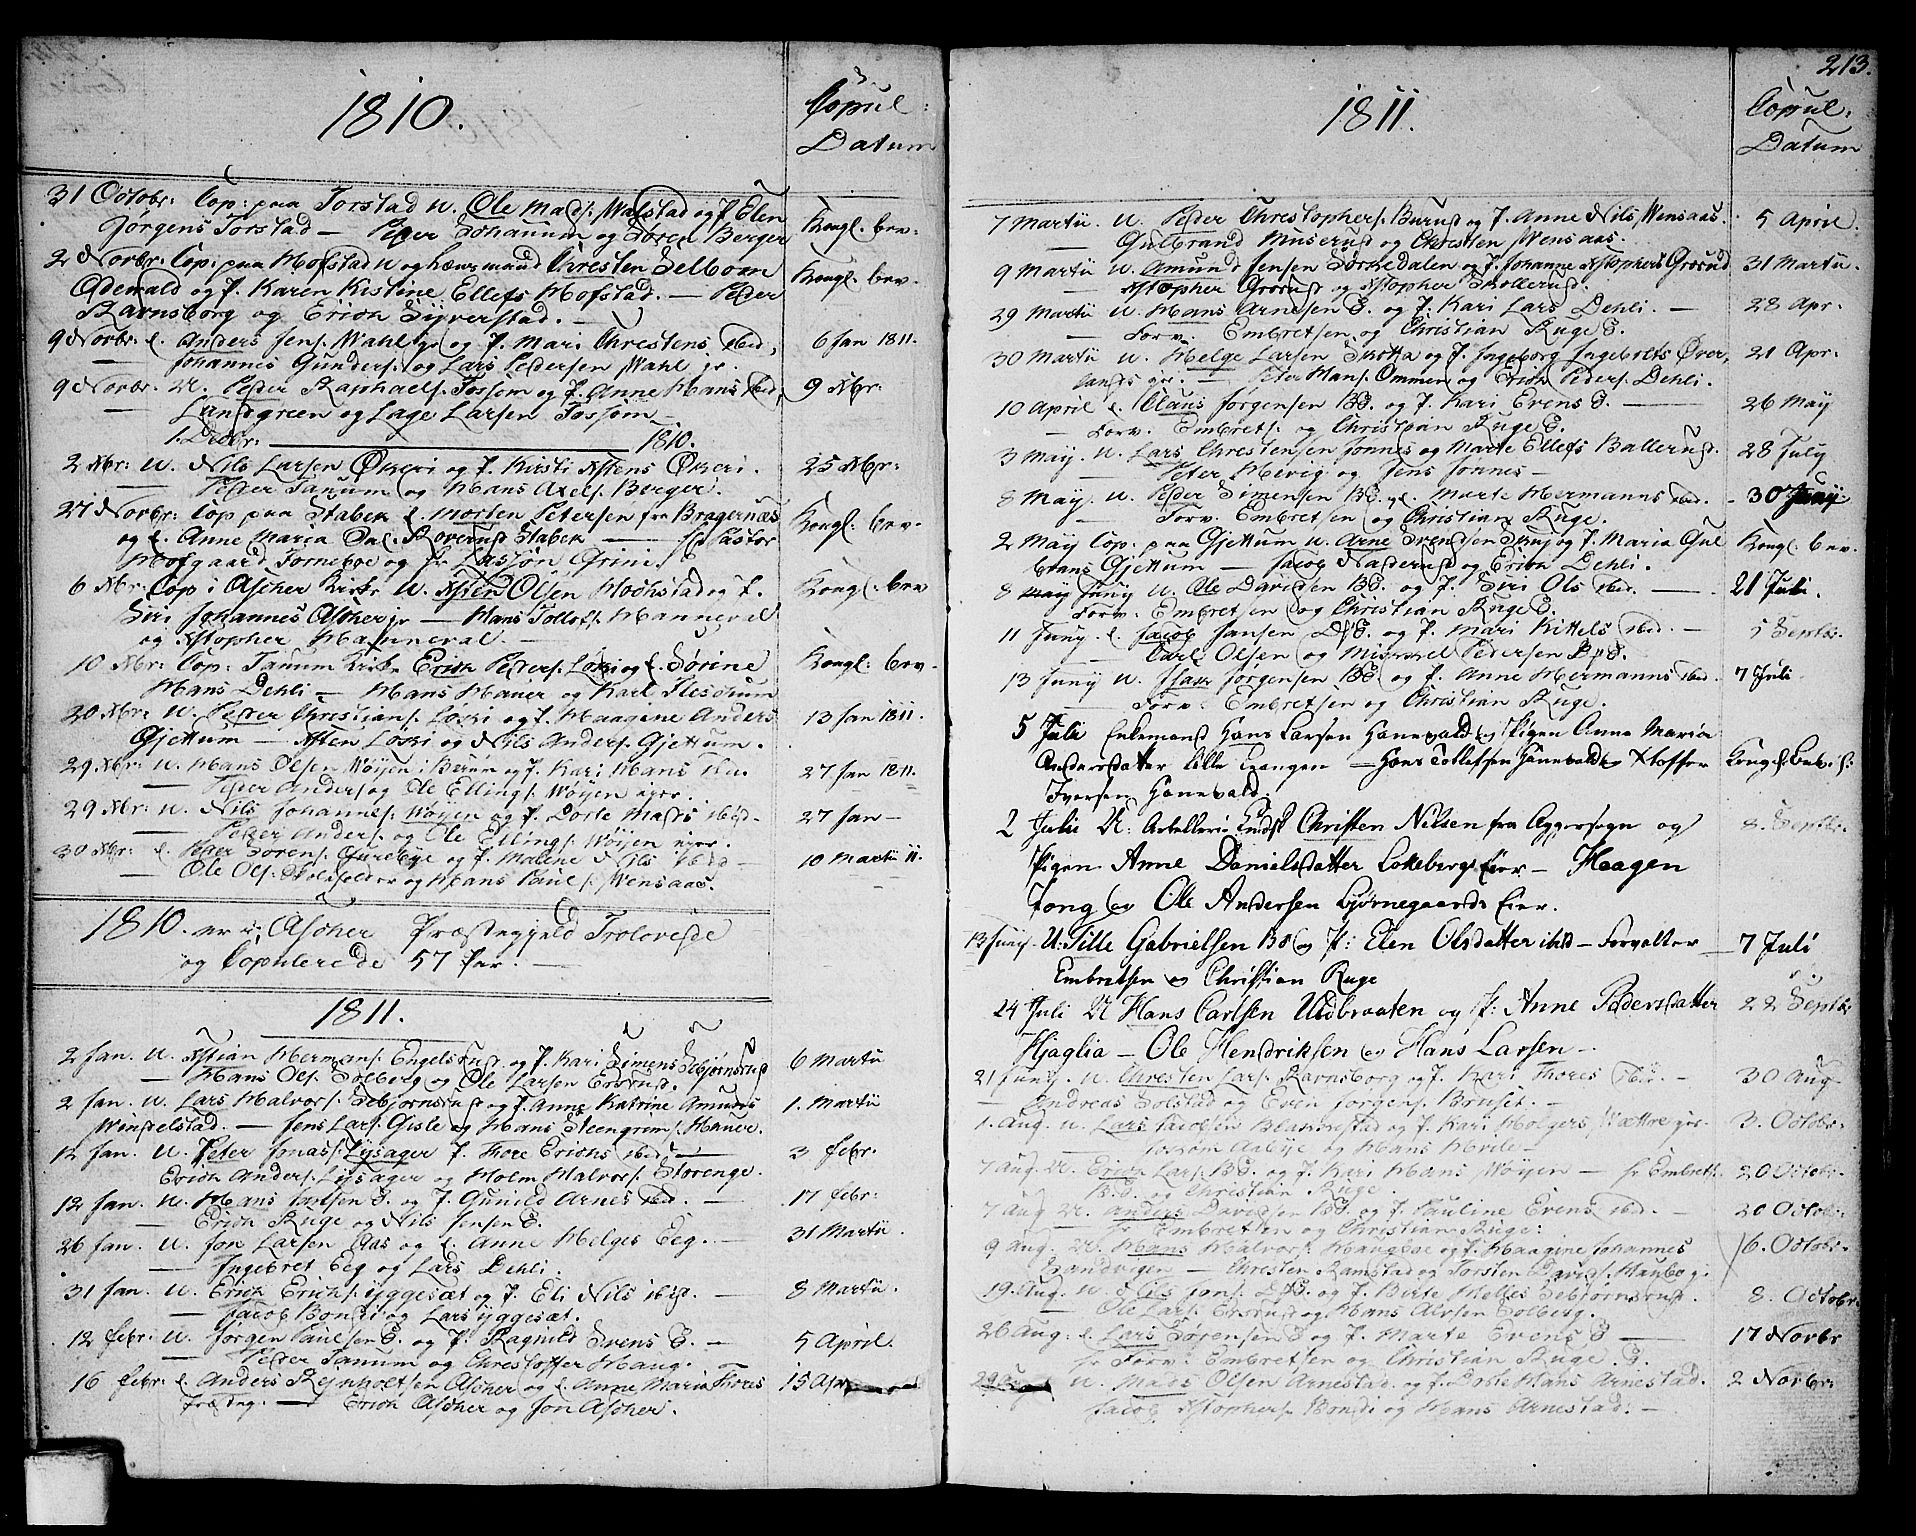 1810.
Copul:
Datum
31 Octobr: Cop: paa Torstad U. Ole Mads: Walstad og P. Elen
Jørgens Torstad — Peter Johannum og Søren Berger
Kongl. bev.
2 Novbr: Cop: paa Hofstad U og Chresten Selbom
Adewald og P. Karen Kistine Ellefs Hofstad. — Peder
Ravnsborg og Erich Syverstad.
Kongl: bev.
9 Novbr: E. Anders Jens: Wahl gr og P. Mari Chrestens ibid,
Johannes Gunders: og Lars Pedersen Wahl gr.
6 Jan 1811.
9 Novbr: U. Peder Raphaels: Fossom og P. Anne Hans ibid,
— Lundgreen og Lage Larsen Fossom —
9 Xbr:
1. Decbr. 1810.
2 Xbr: U. Nils Larsen Økeri og P. Kirsti Astens Økeri.
— Peder Tanum og Hans Axels: Berger.
25 Xbr:
27 Novbr: Cop paa Stabek E. Morten Petersen fra Bragernæs
og E. Anne Maria Dal. Roverud Staben — Hr Pastor
Hofgaard Torneboe og Hr Lassøn Grini.
Kongl: bev.
6 Xbr: Cop i Ascher Kirke U. Asten Olsen Hochstad og P.
Siri Johannes Ascher gr — Hans Tollefs: Hanneval
og Xstopher Hanneval. —
Kongl: bev
10 Xbr: Cop: Tanum Kirke Erich Peders: Løkki og E. Sørine
Hans Dehli — Hans Hauer og Karl Flesoium
Kongl: bev.
20 Xbr: U. Peder Christians: Løkki og P. Haagine Anders
Gjettum — Asten Løkki og Nils Anders: Gjettum.
13 Jan 1811.
29 Xbr: U. Hans Olsen Wøyen i Berum og P. Kari Hans ibd.
— Peder Anders: og Ole Ellings: Wøyen eier.
27 Jan 1811.
29 Xbr: U. Nils Johannes: Wøyen og P. Dorte Mads ibid.
— Peter Anders: og Ole Ellings: Wøyen eier.
27 Jan —
30 Xbr: E. Peter Sørens: Gurebye og P. Malene Nils ibid —
Ole Ols: Holtfolder og Hans Pauls: Wensaas.
10 Martii 11.
1810. er i Ascher Præstegjeld Trolovede
og Copulerede 57 Par. —
1811.
2 Jan. U. Xstian Hermans: Engelsrud og P. Kari Simens Sebjørnsrud
— Hans Ols: Solberg og Ole Larsen Ersrud.
6 Martii
2 Jan. U. Lars Halvors: Sebjørnsrud og P. Anne Katrine Amunds
Winselstad. — Jens Lars: Gisle og Hans Steengrims: Hauer.
1. Martii
12 Jan. U. Peter Jonas: Lysager P. Thore Erichs ibid —
Erich Anders: Lysager og Holm Halvors: Storenge.
3 Febr.
12 Jan. U. Hans Larsen B. og P. Gunild Arnes ibid. —
— Erich Ruge og Nils Jensen B.
17 Febr:
26 Jan. U. Jon Larsen Aas og E. Anne Helges Eeg. —
— Ingebret Eeg og Lars Dehli.
31 Martii
31 Jan. U. Erich Erichs: Yggesæt og P. Eli Nils ibid. —
— Jacob Bondi og Lars Yggesæt.
8 Martii.
12 Febr: U. Jørgen Paulsen B. og P. Ragnild Svens B —
— Peder Tanum og Chrestoffer Haug.
5 April.
16 Febr: E. Anders Reinholtsen Ascher og E. Anne Maria Thores
— Erich Ascher og Jon Ascher.
15 Apr
213.
1811.
Copul:
Datum
7 Martii U. Peder Chrestophers: Burud og P. Anne Nils Wensaas.
— Gulbrand Muserud og Chresten Wensaas.
5 April.
9 Martii U. Amund Jensen Sørkedalen og P. Johanne Xstophers Grorud
— Xstopher Grorud og Xstopher Skollerud.
31 Martii.
29 Martii U. Hans Arnesen B. og P. Kari Lars Dehli. —
— Forv. Embretsen og Christian Ruge B.
28 Apr:
30 Martii U. Helge Larsen Skotta og P. Ingeborg Ingebrets Øver,
lands gr. — Peter Hans: Ommen og Erich Peders: Dehli.
21 Apr:
10 April E. Claus Jørgensen BB. og P. Kari Evens B. —
— Forv. Embrets: og Christian Ruge B.
26 May
3 May. U. Lars Chrestensen Jonnes og Marte Ellefs Ballerud.
— Peter Hevig og Jens Jønnes —
28 July
8 May. U. Peder Simensen BB. og E. Marte Hermanns ibd. —
— Forv. Embretsen og Christian Ruge.
30 Junÿ
2 May Cop: paa Gjettum U. Arne Svendsen Skuj og P. Maria Gul
brans Gjettum — Jacob Nadderud og Erich Dehli.
Kongl: bev.
8 Juny U. Ole Davidsen BB. og P. Siri Ols ibid. —
— Forv: Embretsen og Christian Ruge B.
21 Juli.
11 Juny. E. Jacob Jansen og P. Mari Kittels ibid. —
— Carl Olsen og Michael Pedersen
5 Septbr.
13 Juny U. Isaac Jørgensen BB og P. Anne Hermanns ibid.
— Forv: Embretsen og Christian Ruge.
7 Juli.
5 Juli Enkemand Hans Larsen Hanevald og Pigen Anne Maria
Andersdatter lille — Hans Tollefsen Hanevald og Xstoffer
Iversen Hanevald.
Kongl Bev. s:
2 Julii U: Artelleri Kudsk Christen Nilsen fra Aggersogn og
Pigen Anne Danielsdatter Lokebergs Eier — Haagen
Jong og Ole Andersen Bjørnegaards Eier.
8. Septbr.
13 Juny. U: Tille Gabrielsen BB og P: Elen Olsdatter ibid — Forvalter
Embretsen og Christian Ruge
7 Juli
24 Juli U Hans Carlsen Udbraaten og P: Anne Pedersdatter
Hjaglia — Ole Hendriksen og Hans Larsen —
22 Septbr
21 Juny. U. Chresten Lars: Ravnsborg og P. Kari Thores ibid. —
— Andreas Solstad og Even Jørgens: Bruset. —
30 Aug
1. Aug. U. Lars Jacobsen Blakkestad og P. Kari Holgers Wættre gr.
— Torsom Aabye og Hans Hvile —
3. Octobr.
7 Aug. U. Erich Lars: BB. og P. Kari Hans Wøyen — Hr Embrets:
B.B. og Christian Ruge.
20 Octobr.
7 Aug U. Anders Davidsen BB. og P. Pauline Evens ibid. —
— Hr Embretsen og Christian Ruge:
20 Octobr.
9 Aug. U. Hans Halvors: Haugboe og P. Haagine Johannes
Sandvigen — Chresten Ramstad og Torsten Davids: Hauboe.
6. Octobr.
19. Aug. U. Nils Jons: og P. Birte Helles Sebjørnsrud.
— Ole Lars: Ersrud og Hans Alvsen Solberg.
8. Octobr.
26 Aug: E. Lars Sørensen B og P. Marte Evens B —
— Hr Forv: Embretsen og Christian Ruge B.
17 Novbr
U. Mads Olsen Arnestad. og P. Dorte Hans Arnestad.
— Jacob Xstophers: Bondi og Hans Arnestad. —
2 Novbr.